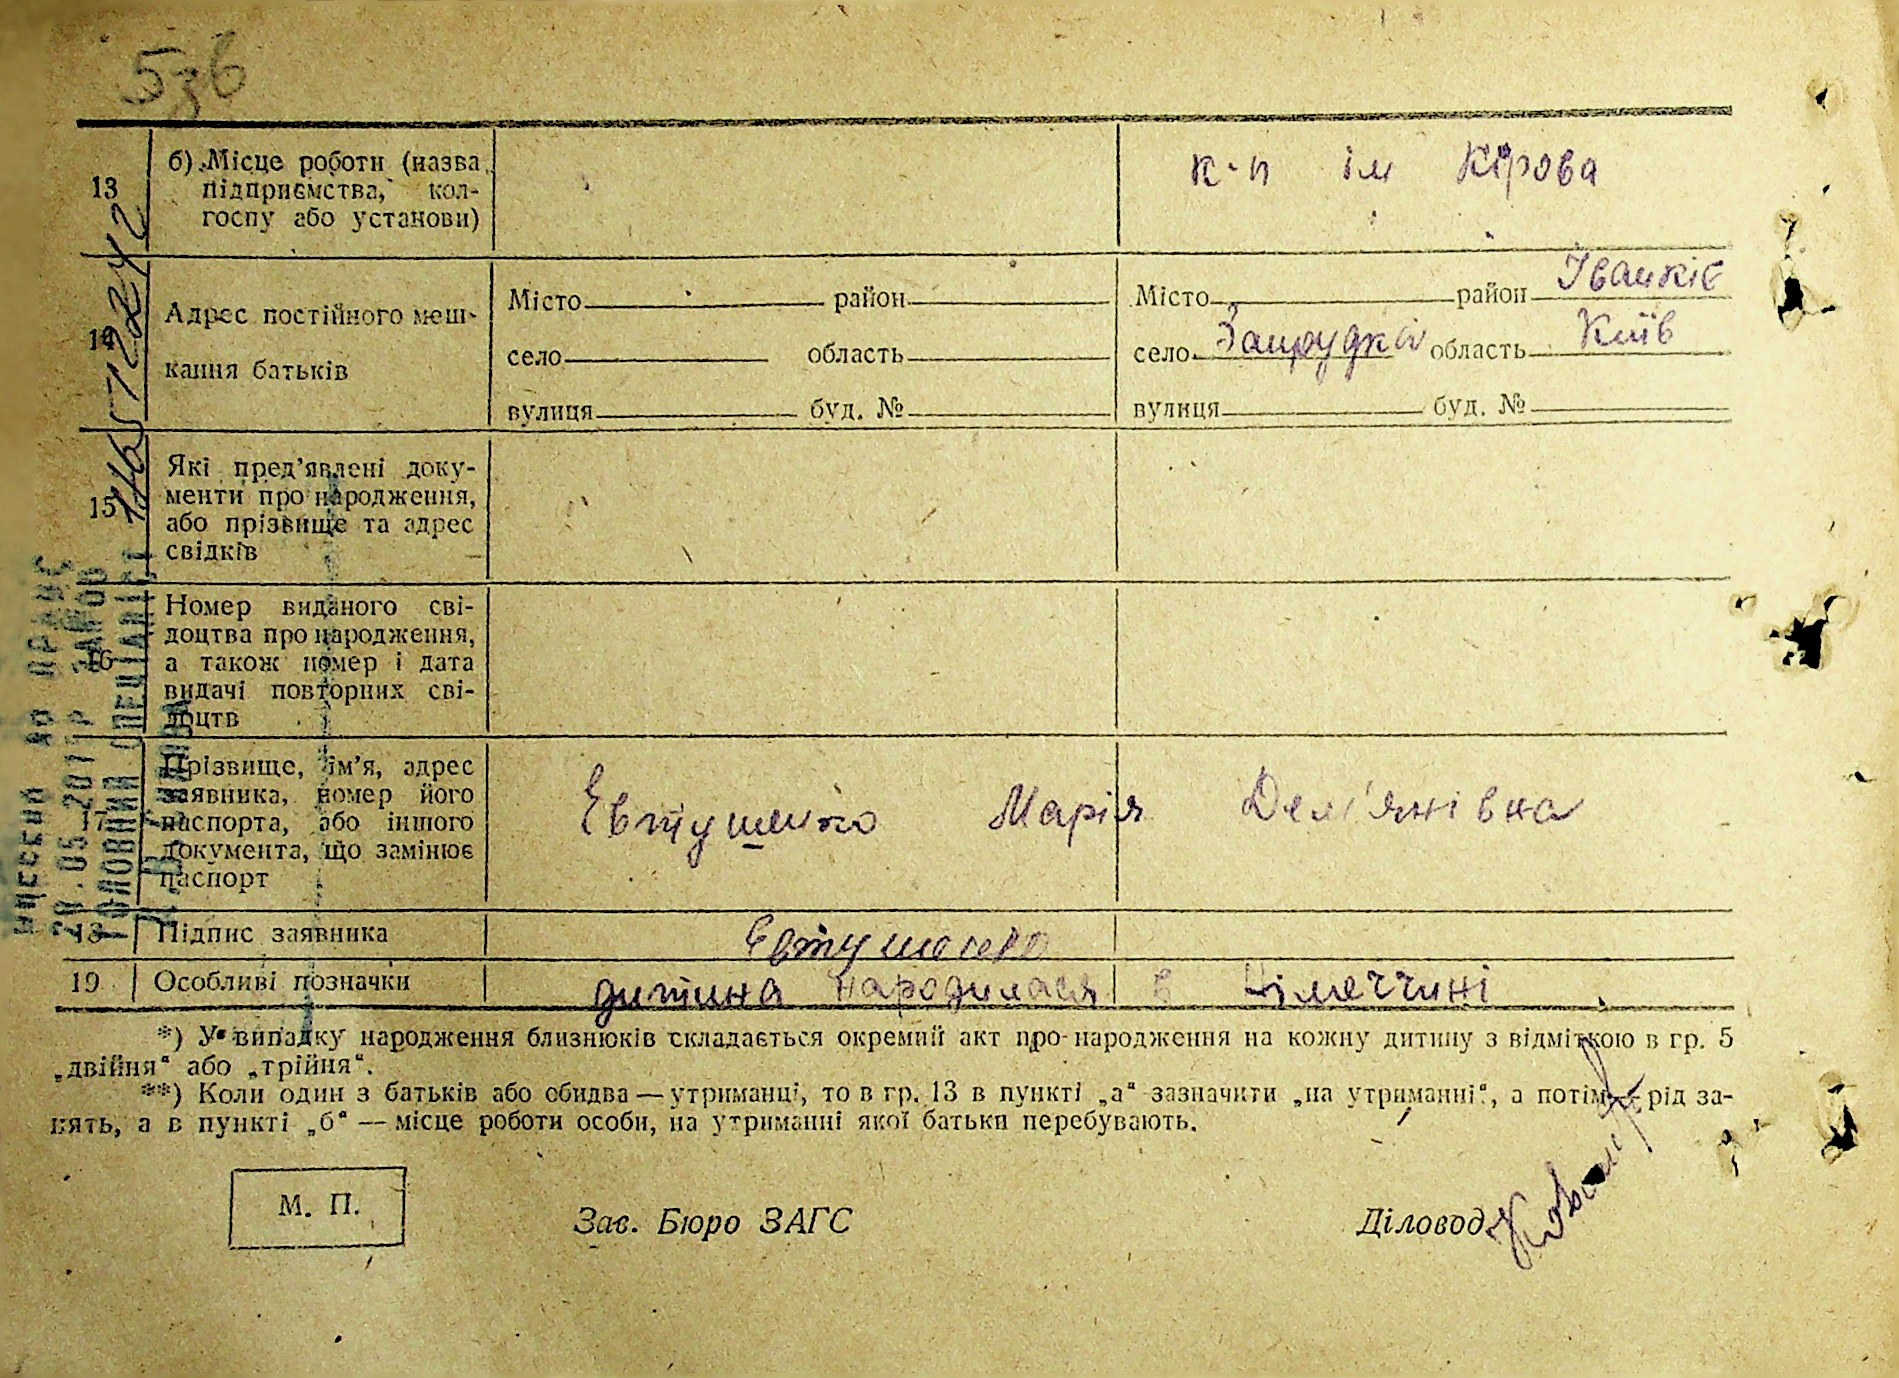 536
13
б) Місце роботи (назва
підприємства, кол-
госпу або установи)
к-п ім Кірова
14
Адрес постійного меш-
кання батьків
Місто район
село область
вулиця буд. №
Місто район Іванків
село Запрудка область Київ
вулиця буд. №
15
Які пред'явлені доку-
менти про народження,
або прізвище та адрес
свідків
16
Номер виданого сві-
доцтва про народження,
а також номер і дата
видачі повторних сві-
доцтв
17
Прізвище, ім'я, адрес
заявника, номер його
паспорта, або іншого
документа, що замінює
паспорт
Євтушенко Марія Дем'янівна
18
Підпис заявника
Євтушенко
19
Особливі позначки
дитина народилася в Німеччині
*) У випадку народження близнюків складається окремий акт про народження на кожну дитину з відміткою в гр. 5
„двійня“ або „трійня“.
**) Коли один з батьків або обидва — утриманці, то в гр. 13 в пункті „а“ зазначити „на утриманні“, а потім — рід за-
нять, а в пункті „б“ — місце роботи особи, на утриманні якої батьки перебувають.
М. П.
Зав. Бюро ЗАГС
Діловод
ГОЛОВНИЙ СПЕЦІАЛІСТ